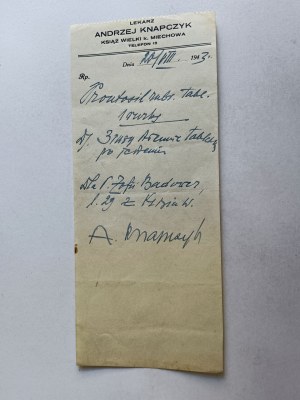 LEKARZ
ANDRZEJ KNAPCZYK
KSIĄŻ WIELKI k. MIECHOWA
TELEFON 10
Dnia 20/VIII. 1943.
Rp.
Prontosil subs. tabl.
1 owity
D. S. 3 razy dziennie tabletkę
po jedzeniu
Dla P. Zofii
l. 29 z
A. Knapczyk